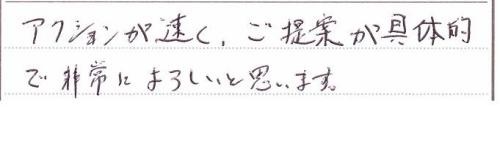 アクションが速く、ご提案が具体的
で非常によろしいと思います。